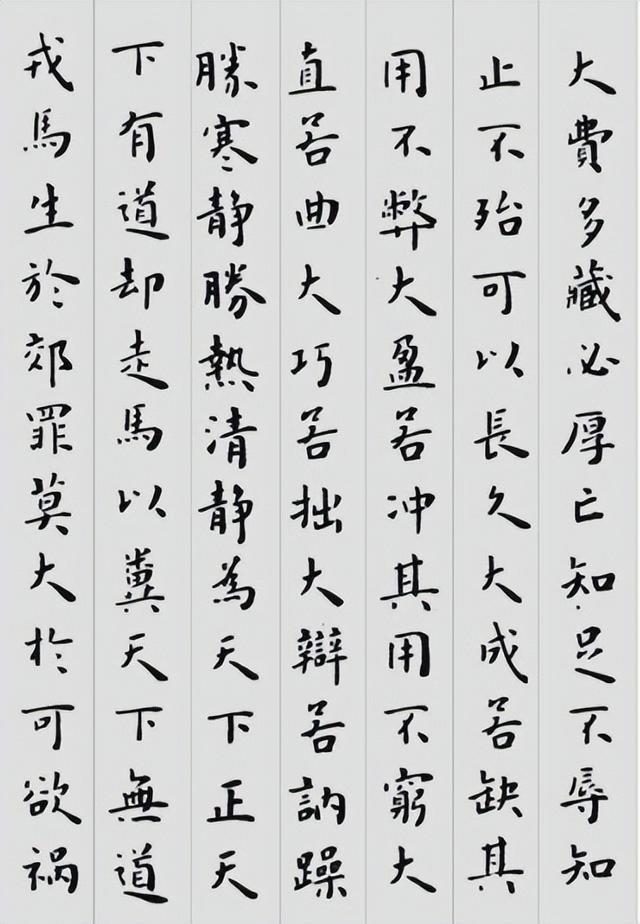 大費多藏必厚亡知足不辱知
止不殆可以長久大成若缺其
用不弊大盈若冲其用不窮大
直若曲大巧若拙大辯若訥躁
勝寒静勝熱清静為天下正天
下有道却走馬以糞天下無道
戎馬生於郊罪莫大於可欲禍